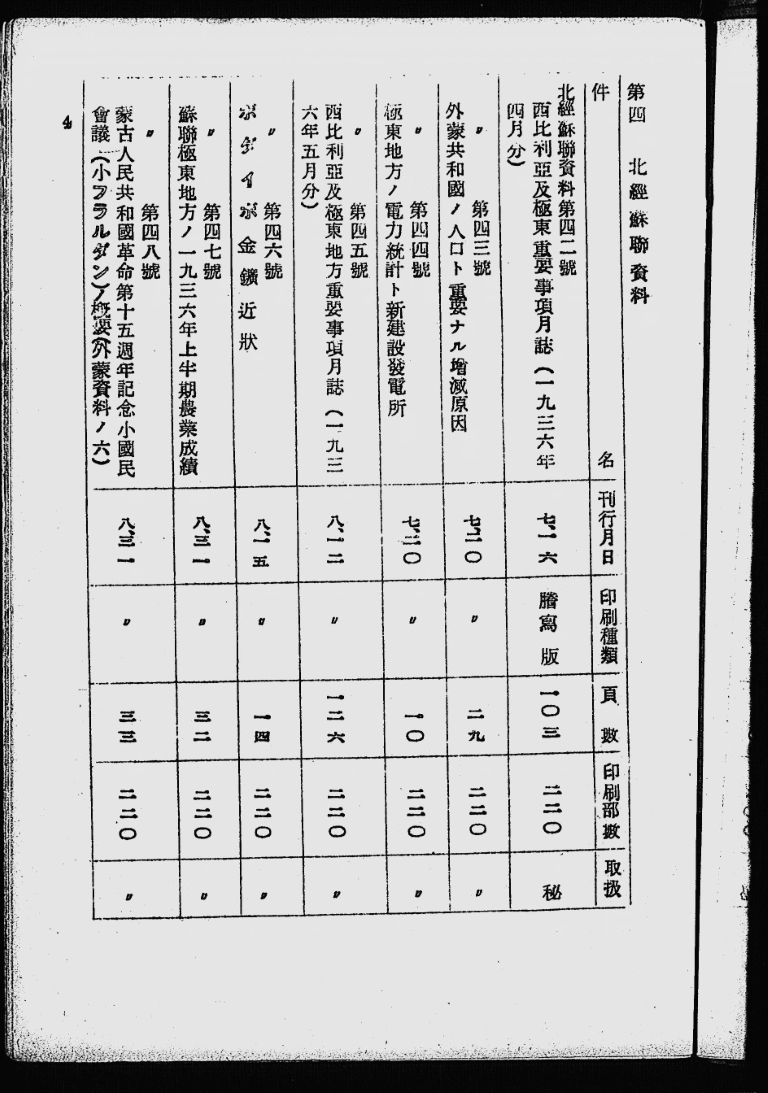 第四　北經蘇聯資料
件　名
刊行月日
印刷種類
頁數
印刷部數
取扱
北經蘇聯資料第四二號
西比利亞及極東重要事項月誌（一九三六年
四月分）
七、一六
謄寫版
一〇三
二二〇
秘
〃　第四三號
外蒙共和國ノ人口ト重要ナル增減原因
七、二〇
〃
二九
二二〇
〃
〃　第四四號
極東地方ノ電力統計ト新建設發電所
七、二〇
〃
一〇
二二〇
〃
〃　第四五號
西比利亞及極東地方重要事項月誌（一九三
六年五月分）
八、一二
〃
一二六
二二〇
〃
〃　第四六號
ボダイボ金鑛近狀
八、一五
〃
一四
二二〇
〃
〃　第四七號
蘇聯極東地方ノ一九三六年上半期農業成績
八、三一
〃
三二
二二〇
〃
〃　第四八號
蒙古人民共和國革命第十五週年記念小國民
會議（小フラルダン）ノ概要（外蒙資料ノ六）
八、三一
〃
三三
二二〇
〃
4